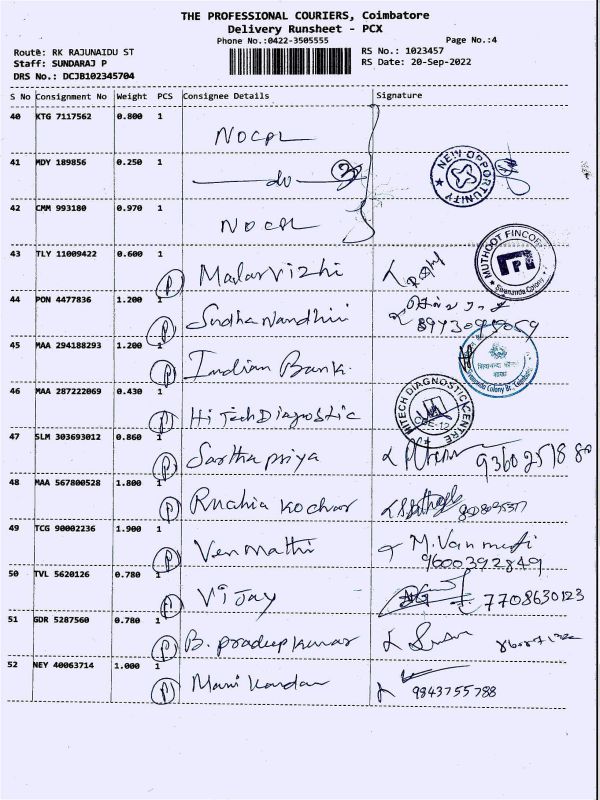 THE PROFESSIONAL COURIERS, Coimbatore
Delivery Runsheet - PCX
Phone No.:0422-3505555
Page No.:4
Route: RK RAJUNAIDU ST
RS No.: 1023457
Staff: SUNDARAJ P
RS Date: 20-Sep-2022
DRS No.: DCJB102345704
S No Consignment No Weight PCS Consignee Details Signature
40 KTG 7117562 0.800 1
NOCPL
41 MDY 189856 0.250 1
do
NEW OPPORTUNITY
42 CMM 993180 0.970 1
NOCPL
43 TLY 11009422 0.600 1
P Malarvizhi
MUTHOOT FINCORP
Sivananda Colony
44 PON 4477836 1.200 1
P Sudha Nandhini
8973095059
45 MAA 294188293 1.200 1
P Indian Bank.
46 MAA 287222069 0.430 1
P Hi Tech Diagnostic
HITECH DIAGNOSTIC CENTRE
CBE-12
47 SLM 303693012 0.860 1
P Sarthapriya
48 MAA 567800528 1.800 1
P Ruchia Kochar
49 TCG 90002236 1.900 1
P Venmathi
M. Vanmati
9600392849
50 TVL 5620126 0.780 1
P Vijay
7708630123
51 GDR 5287560 0.780 1
P B. Pradeep Kumar
52 NEY 40063714 1.000 1
P Mani Kandan
9843755788